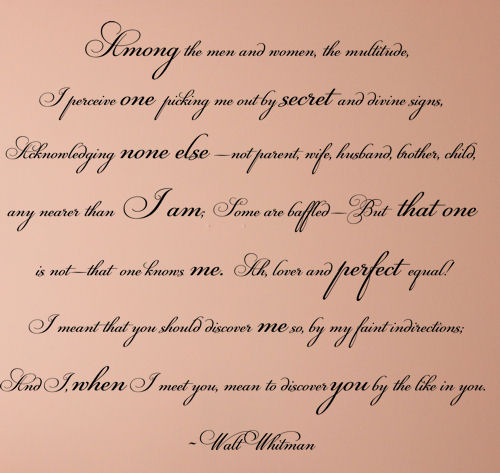 Among the men and women, the multitude,
I perceive one picking me out by secret and divine signs,
Acknowledging none else — not parent, wife, husband, brother, child,
any nearer than I am; Some are baffled—But that one
is not—that one knows me. Ah, lover and perfect equal!
I meant that you should discover me so, by my faint indirections;
And I, when I meet you, mean to discover you by the like in you.
~Walt Whitman